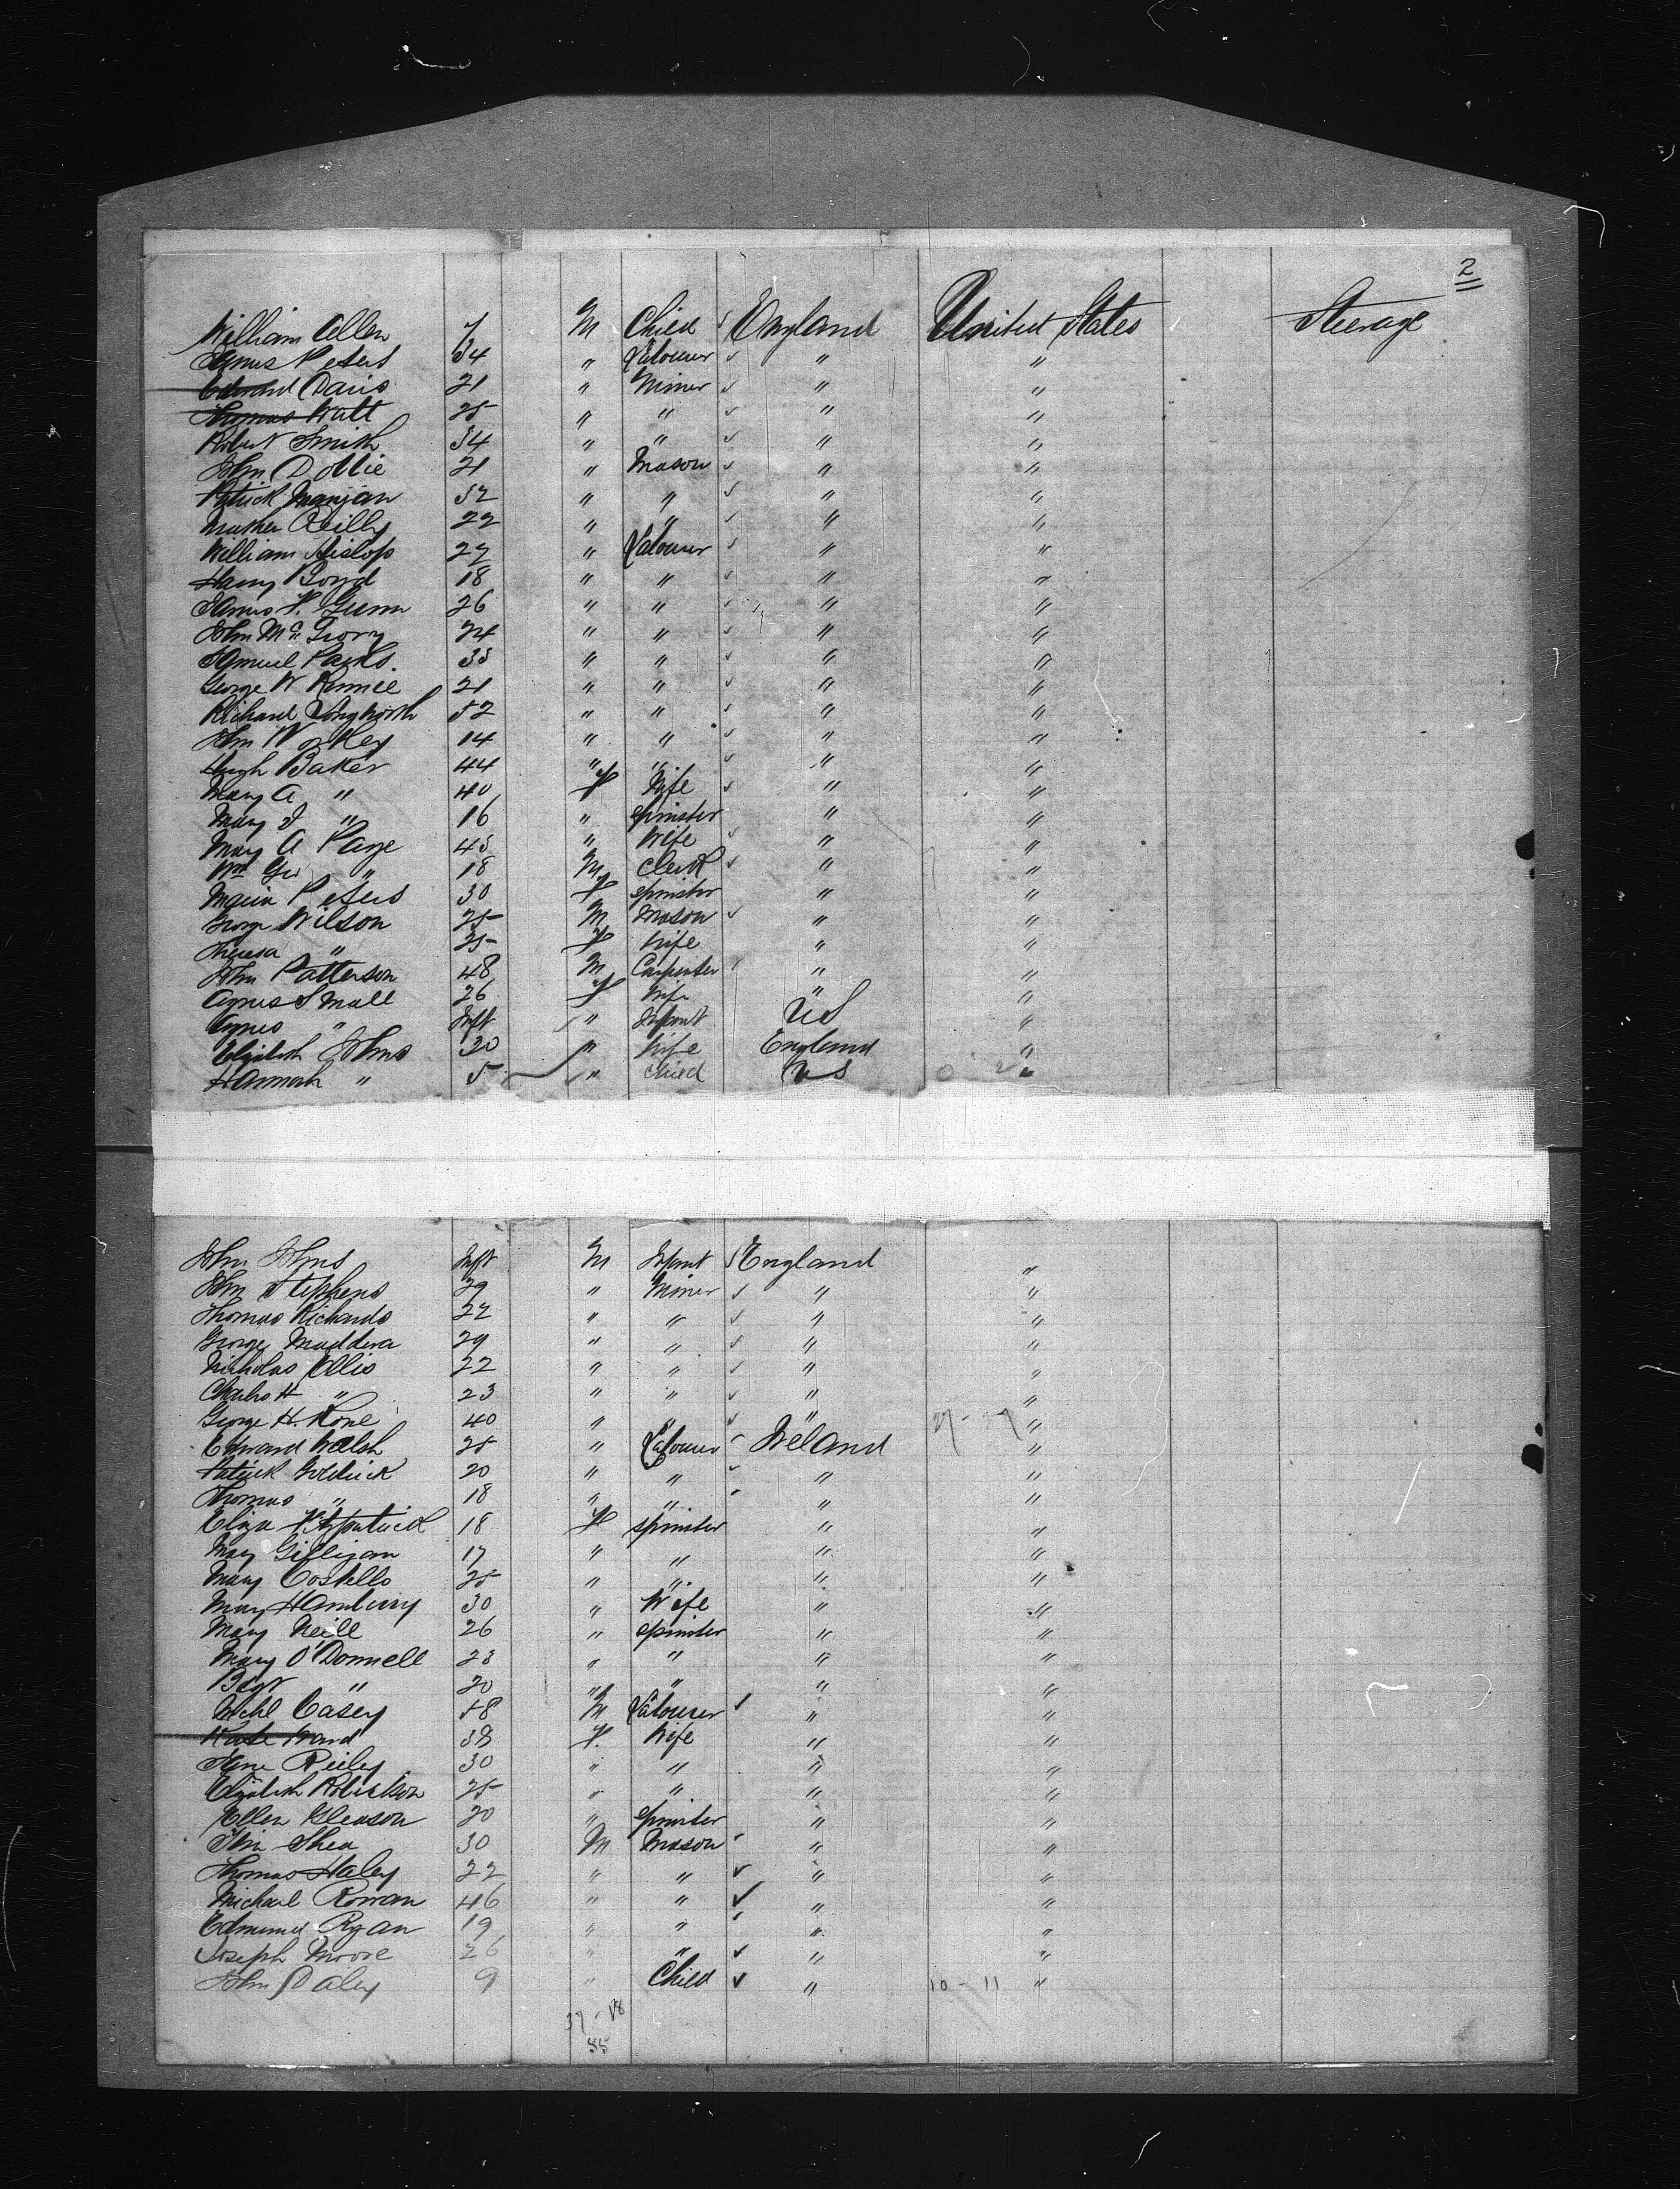 2
William Allen 7 M Child England United States Steerage
James Peters 34 " Labourer " "
Edward Davis 21 " Miner " "
Thomas Watt 25 " " " "
Robert Smith 34 " " " "
John Dobbie 21 " Mason " "
Patrick Mangan 52 " " " "
Reilly 22 " " " "
William Hislop 27 " Labourer " "
Harry Boyd 18 " " " "
James H. Gunn 26 " " " "
John McGrory 24 " " " "
Samuel Parks. 33 " " " "
George W Rennie 21 " " " "
Richard Longworth 52 " " " "
John Workey 14 " " " "
Hugh Baker 44 " " " "
Mary A " 40 F Wife " "
Mary J " 16 " Spinster " "
Mary A Page 45 " Wife " "
Wm Geo " 18 M Clerk " "
Maria Peters 30 F Spinster " "
George Wilson 25 M Mason " "
Theresa " 25 F Wife " "
John Patterson 48 M Carpenter " "
Agnes Small 26 F Wife " "
Agnes " Inft " Infant US "
Elizabeth Johns 30 " Wife England "
Hannah " 5 " Child US "
John Johns Inft M Infant England "
John Stephens 29 " Miner " "
Thomas Richards 22 " " " "
George Maddern 29 " " " "
Nicholas Ellis 22 " " " "
Charles H " 23 " " " "
George H. Rowe 40 " " " "
Edward Walsh 25 " Labourer Ireland "
Patrick Goldrick 20 " " " "
Thomas " 18 " " " "
Eliza Fitzpatrick 18 F Spinster " "
Mary Gilligan 17 " " " "
Mary Costello 25 " " " "
Mary Hanbury 30 " Wife " "
Mary Neill 26 " Spinster " "
Mary O'Donnell 23 " " " "
Bdgt " 20 " " " "
Michl Casey 58 M Labourer " "
Kate Ward 38 F. Wife " "
Jane Reiley 30 " " " "
Elizabeth Robertson 25 " " " "
Ellen Gleason 20 " Spinster " "
Shea 30 M Mason " "
Thomas Haley 22 " " " "
Michael Rowan 46 " " " "
Edmund Ryan 19 " " " "
Joseph Moore 26 " " " "
John Daley 9 " Child " 10 - 11 "
37 - 18
55